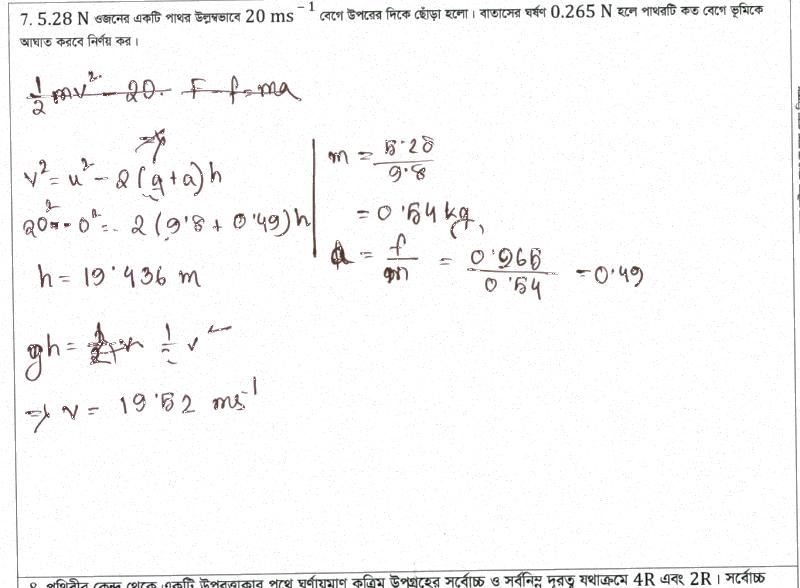 7. 5.28 N ওজনের একটি পাথর উলম্বভাবে 20 ms⁻¹ বেগে উপরের দিকে ছোঁড়া হলো। বাতাসের ঘর্ষণ 0.265 N হলে পাথরটি কত বেগে ভূমিকে
আঘাত করবে নির্ণয় কর।
½mv² = 20. F - f = ma
v² = u² - 2(g+a)h
20² - 0² = 2(9.8 + 0.49)h
h = 19.436 m
gh = ½ v²
⇒ v = 19.52 ms⁻¹
m = 5.28/9.8
= 0.54 kg,
a = f/m = 0.265/0.54 = 0.49
8. পৃথিবীর কেন্দ্র থেকে একটি উপবৃত্তাকার পথে ঘূর্ণায়মাণ কৃত্রিম উপগ্রহের সর্বোচ্চ ও সর্বনিম্ন দূরত্ব যথাক্রমে 4R এবং 2R। সর্বোচ্চ